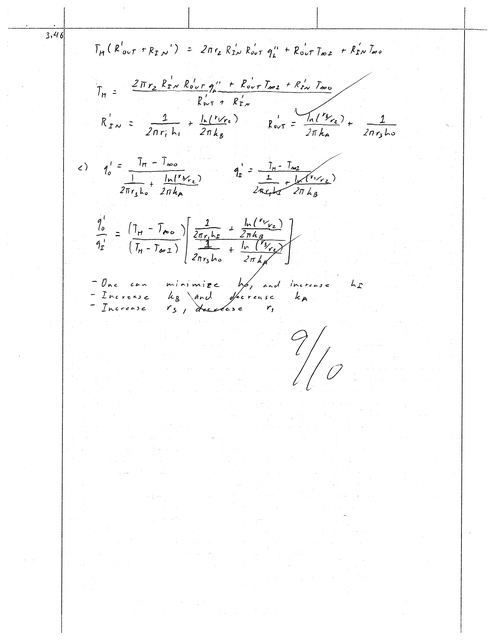 3.46
T_H (R'_OUT + R_IN') = 2πr₂ R'_IN R'_OUT q"_h + R'_OUT T∞I + R'_IN T∞o
T_H = (2πr₂ R'_IN R'_OUT q"_h + R'_OUT T∞I + R'_IN T∞o) / (R'_OUT + R'_IN)
R'_IN = 1/(2πr₁h_I) + ln(r₂/r₁)/(2πk_B)    R'_OUT = ln(r₃/r₂)/(2πk_A) + 1/(2πr₃h_o)
c) q'_o = (T_H - T∞o) / (1/(2πr₃h_o) + ln(r₃/r₂)/(2πk_A))    q'_I = (T_H - T∞I) / (1/(2πr₁h_I) + ln(r₁/r₂)/(2πk_B))
q'_o/q'_I = (T_H - T∞o)/(T_H - T∞I) [(1/(2πr₁h_I) + ln(r₁/r₂)/(2πk_B)) / (1/(2πr₃h_o) + ln(r₃/r₂)/(2πk_A))]
- One can minimize h_o, and increase h_I
- Increase k_B and decrease k_A
- Increase r₃, decrease r₁
9/10